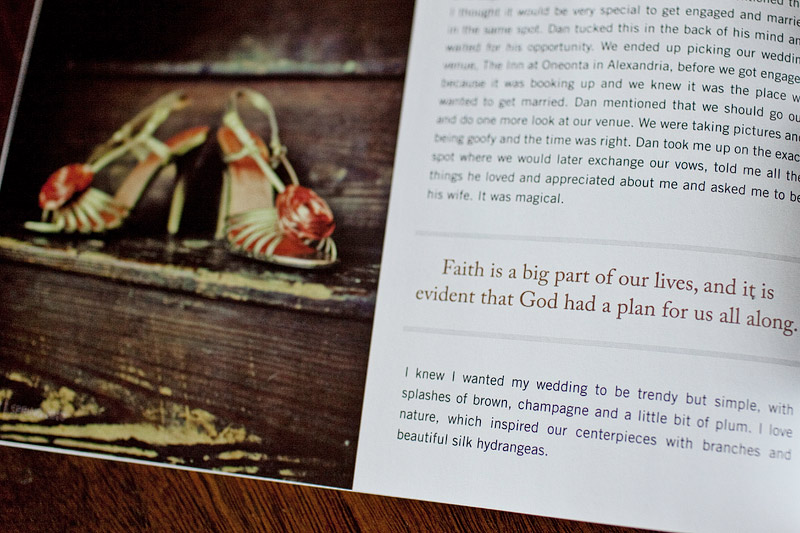 I thought it would be very special to get engaged and marrie
in the same spot. Dan tucked this in the back of his mind an
waited for his opportunity. We ended up picking our weddin
venue, The Inn at Oneonta in Alexandria, before we got engage
because it was booking up and we knew it was the place w
wanted to get married. Dan mentioned that we should go ou
and do one more look at our venue. We were taking pictures an
being goofy and the time was right. Dan took me up on the exac
spot where we would later exchange our vows, told me all the
things he loved and appreciated about me and asked me to be
his wife. It was magical.
Faith is a big part of our lives, and it is
evident that God had a plan for us all along.
I knew I wanted my wedding to be trendy but simple, with
splashes of brown, champagne and a little bit of plum. I love
nature, which inspired our centerpieces with branches and
beautiful silk hydrangeas.